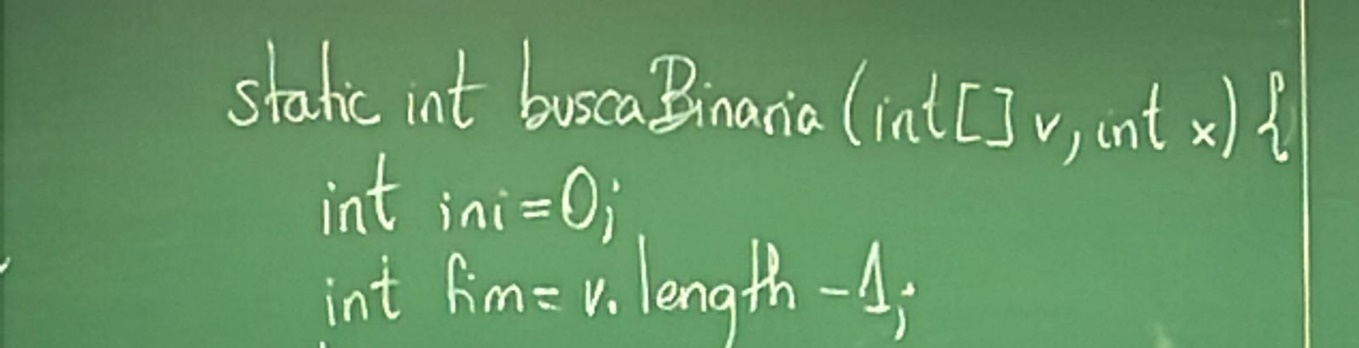 static int buscaBinaria (int[] v, int x) {
int ini=0;
int fim= v.length -1;